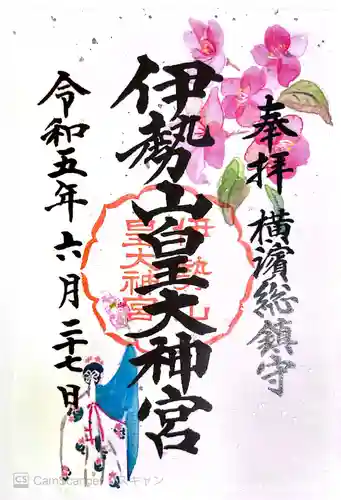 奉拝
横濱総鎮守
伊勢山皇大神宮
伊勢山
皇大神宮
令和五年六月二十七日
CS CamScanger でスキャン